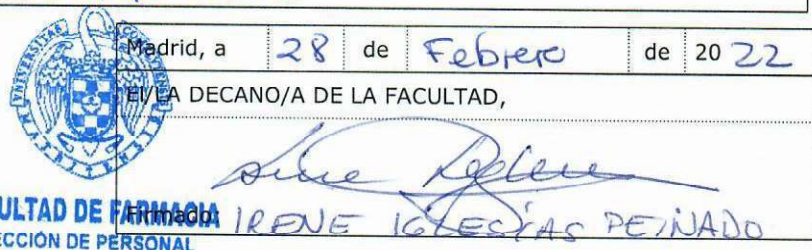 Madrid, a 28 de Febrero de 2022
El/LA DECANO/A DE LA FACULTAD,
Firmado: IRENE IGLESIAS PEINADO
ULTAD DE FARMACIA
ECCIÓN DE PERSONAL